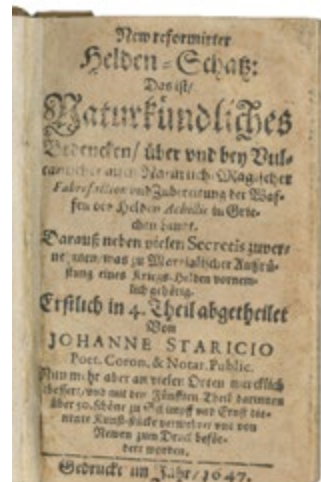 New reformirter
Helden-Schatz:
Das ist/
Naturkündliches
Bedencken/ über vnd bey Vul-
canischer auch Natürlich-Magischer
Fabrefaction vnd Zubereitung der Waf-
fen des Helden Achillis in Grie-
chen
Darauß neben vielen Secretis zuver-
nehmen/ was zu Martialischer Außrü-
stung eines Kriegs-Helden vornem-
lich gehörig.
Erstlich in 4. Theil abgetheilet
Von
JOHANNE STARICIO
Poet. Coron. & Notar. Public.
Nun mehr aber an vielen Orten mercklich
gebessert/ vnd mit dem Fünfften Theil darinnen
über 50. schöne zu Schimpff vnd Ernst die-
nende Kunst-stücke vermehret vnd von
Newen zum Druck beför-
dert worden.
Gedruckt im Jahr/ 1647.